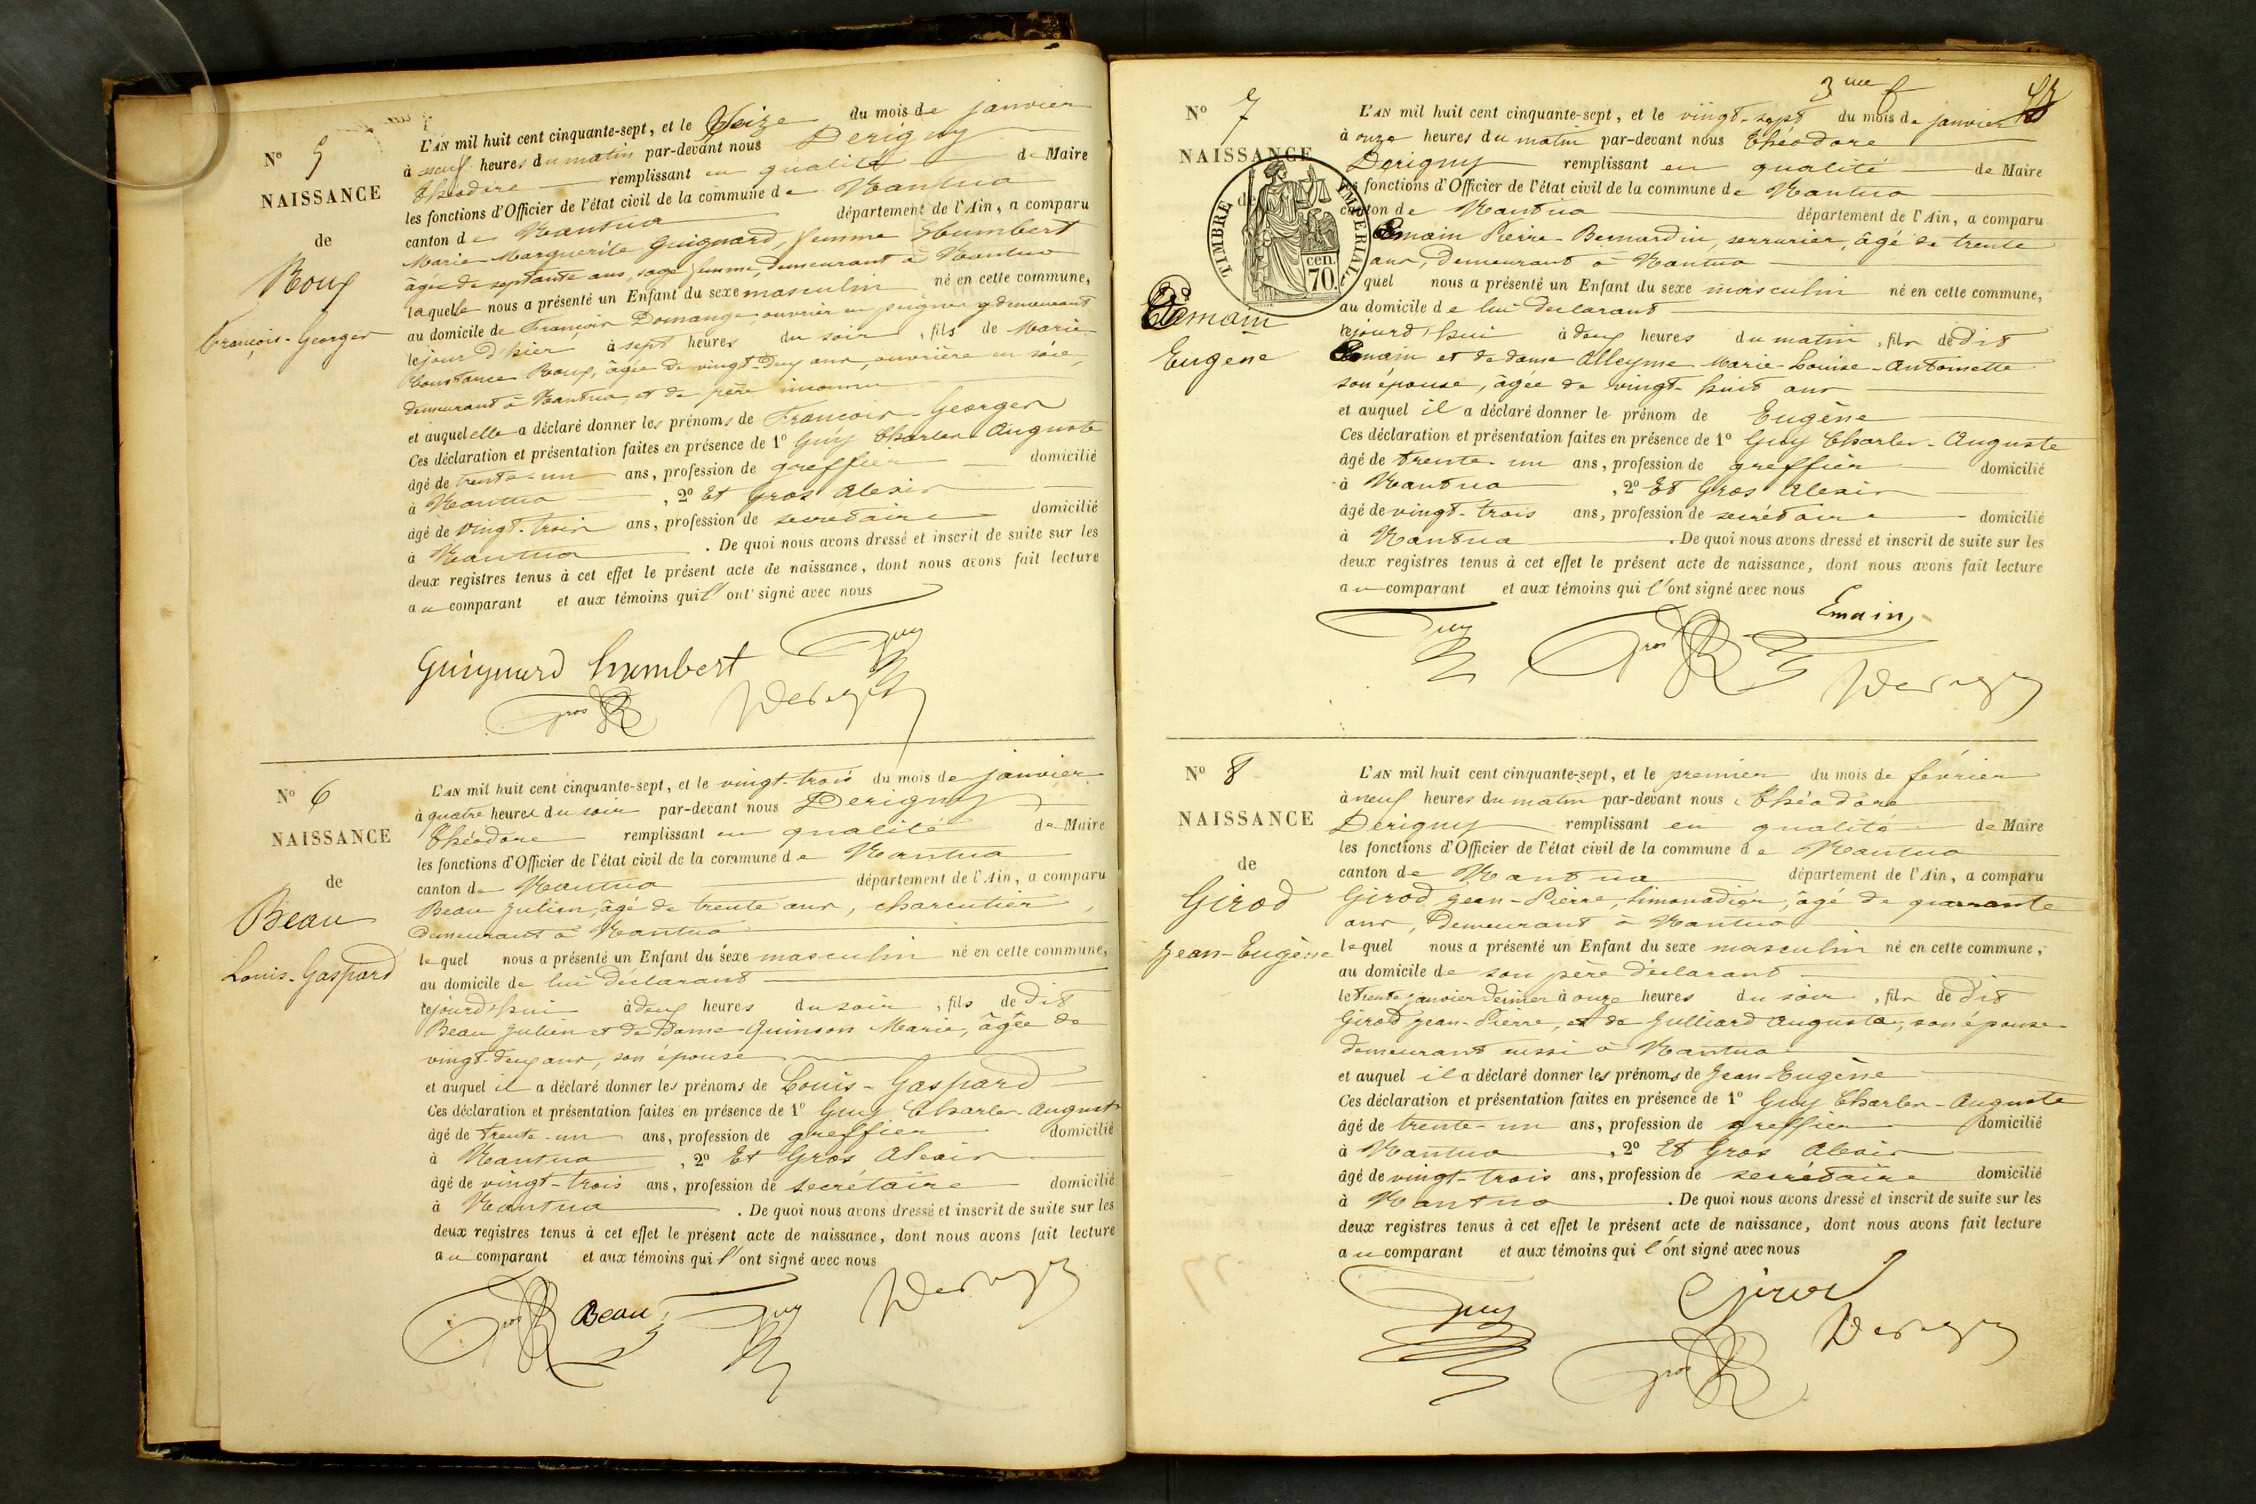 N° 5
NAISSANCE
de
Roux
François-Georges
L'AN mil huit cent cinquante-sept, et le seize du mois de janvier
à neuf heures du matin par-devant nous Derigny
Théodore remplissant en qualité de Maire
les fonctions d'Officier de l'état civil de la commune de Nantua
canton de Nantua département de l'Ain, a comparu
Marie Marguerite Guignard, femme Humbert
âgée de septante ans, sage femme, demeurant à Nantua
laquelle nous a présenté un Enfant du sexe masculin né en cette commune,
au domicile de François Domange, ouvrier en peignes y demeurant
le jour d'hier à sept heures du soir, fils de Marie-
Constance Roux, âgée de vingt-deux ans, ouvrière en soie,
demeurant à Nantua, et de père inconnu
et auquel elle a déclaré donner les prénoms de François-Georges
Ces déclaration et présentation faites en présence de 1° Guy Charles-Auguste
âgé de trente-un ans, profession de greffier domicilié
à Nantua, 2° Et Gros Alexis
âgé de vingt-trois ans, profession de secrétaire domicilié
à Nantua. De quoi nous avons dressé et inscrit de suite sur les
deux registres tenus à cet effet le présent acte de naissance, dont nous avons fait lecture
au comparant et aux témoins qui l'ont signé avec nous
Guignard humbert Guy
Gros Derigny
N° 6
NAISSANCE
de
Beau
Louis-Gaspard
L'AN mil huit cent cinquante-sept, et le vingt-trois du mois de janvier
à quatre heures du soir par-devant nous Derigny
Théodore remplissant en qualité de Maire
les fonctions d'Officier de l'état civil de la commune de Nantua
canton de Nantua département de l'Ain, a comparu
Beau Julien, âgé de trente ans, charcutier,
demeurant à Nantua
lequel nous a présenté un Enfant du sexe masculin né en cette commune,
au domicile de lui déclarant
cejourd'hui à deux heures du soir, fils de dit
Beau Julien et de Dame Quinson Marie, âgée de
vingt-deux ans, son épouse
et auquel il a déclaré donner les prénoms de Louis-Gaspard
Ces déclaration et présentation faites en présence de 1° Guy Charles-Auguste
âgé de trente-un ans, profession de greffier domicilié
à Nantua, 2° Et Gros Alexis
âgé de vingt-trois ans, profession de secrétaire domicilié
à Nantua. De quoi nous avons dressé et inscrit de suite sur les
deux registres tenus à cet effet le présent acte de naissance, dont nous avons fait lecture
au comparant et aux témoins qui l'ont signé avec nous
Gros Beau Guy Derigny
3me f
N° 7
NAISSANCE
de
TIMBRE IMPERIAL
cen. 70.
Emain
Eugene
L'AN mil huit cent cinquante-sept, et le vingt-sept du mois de janvier
à onze heures du matin par-devant nous Théodore
Derigny remplissant en qualité de Maire
les fonctions d'Officier de l'état civil de la commune de Nantua
canton de Nantua département de l'Ain, a comparu
Emain Pierre-Bernardin, serrurier, âgé de trente
ans, demeurant à Nantua
quel nous a présenté un Enfant du sexe masculin né en cette commune,
au domicile de lui déclarant
cejourd'hui à deux heures du matin, fils de dit
Emain et de dame Alleyme Marie-Louise-Antoinette
son épouse, âgée de vingt-huit ans
et auquel il a déclaré donner le prénom de Eugène
Ces déclaration et présentation faites en présence de 1° Guy Charles-Auguste
âgé de trente-un ans, profession de greffier domicilié
à Nantua, 2° Et Gros Alexis
âgé de vingt-trois ans, profession de secrétaire domicilié
à Nantua. De quoi nous avons dressé et inscrit de suite sur les
deux registres tenus à cet effet le présent acte de naissance, dont nous avons fait lecture
au comparant et aux témoins qui l'ont signé avec nous
Emain
Guy Gros Derigny
N° 8
NAISSANCE
de
Girod
Jean-Eugène
L'AN mil huit cent cinquante-sept, et le premier du mois de février
à neuf heures du matin par-devant nous Théodore
Derigny remplissant en qualité de Maire
les fonctions d'Officier de l'état civil de la commune de Nantua
canton de Nantua département de l'Ain, a comparu
Girod Jean-Pierre, limonadier, âgé de quarante
ans, demeurant à Nantua
lequel nous a présenté un Enfant du sexe masculin né en cette commune,
au domicile de son père déclarant
le trente janvier dernier à onze heures du soir, fils de dit
Girod Jean-Pierre, et de Julliard Augusta, son épouse
demeurant aussi à Nantua
et auquel il a déclaré donner les prénoms de Jean-Eugène
Ces déclaration et présentation faites en présence de 1° Guy Charles-Auguste
âgé de trente-un ans, profession de greffier domicilié
à Nantua, 2° Et Gros Alexis
âgé de vingt-trois ans, profession de secrétaire domicilié
à Nantua. De quoi nous avons dressé et inscrit de suite sur les
deux registres tenus à cet effet le présent acte de naissance, dont nous avons fait lecture
au comparant et aux témoins qui l'ont signé avec nous
Guy Girod
Gros Derigny